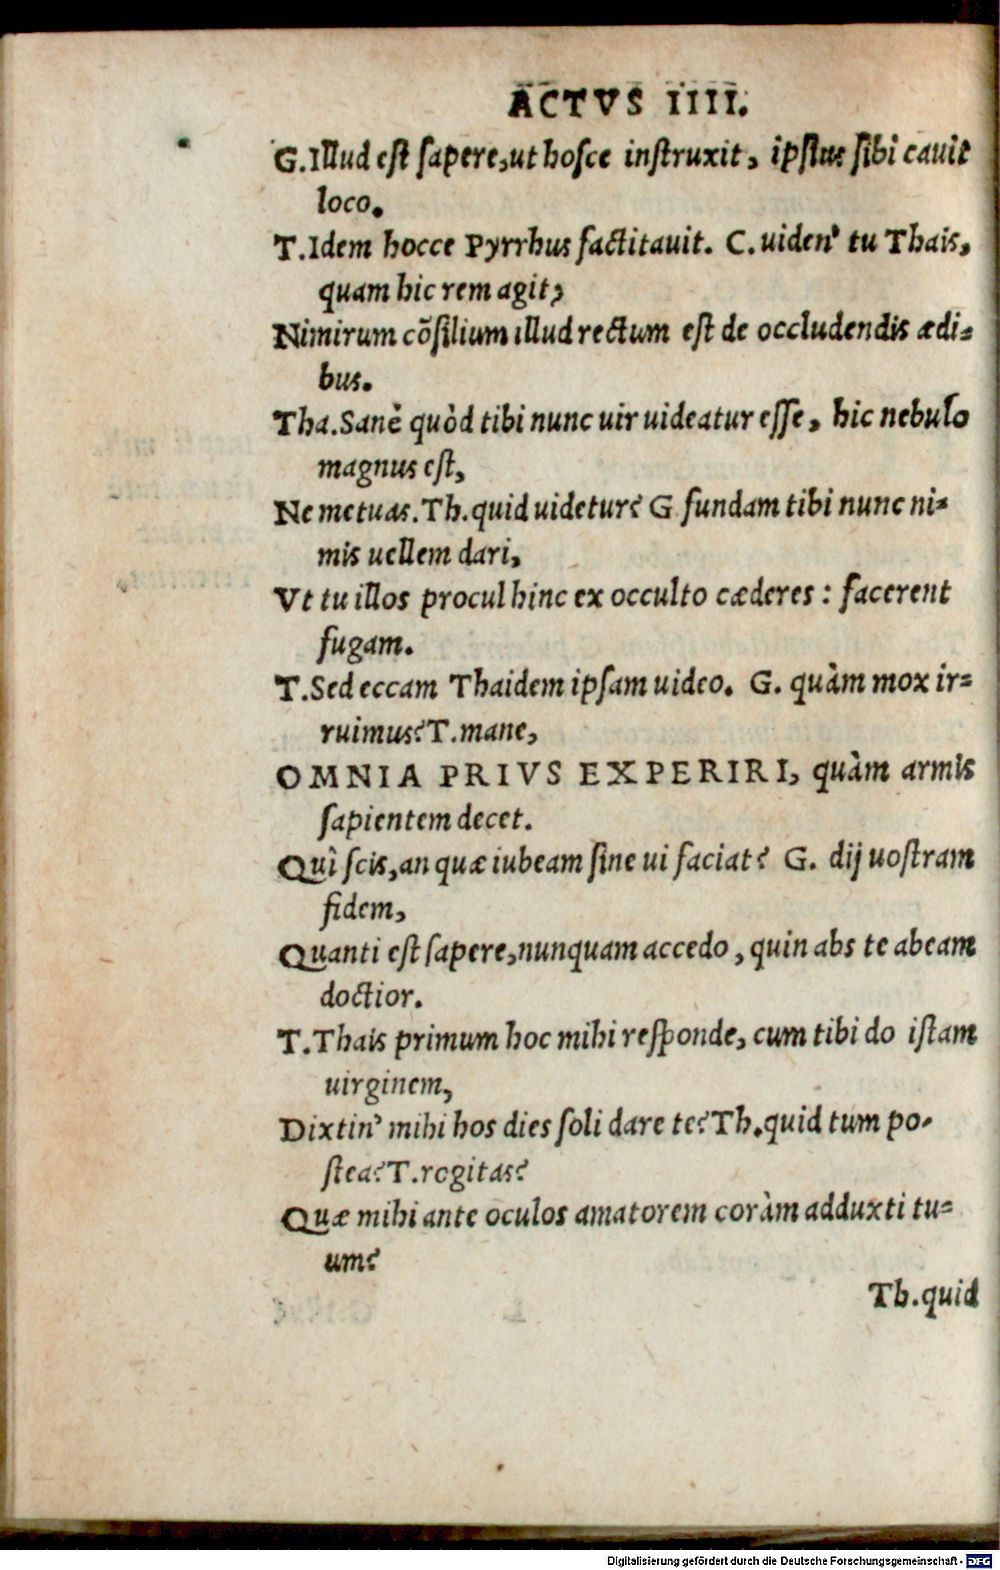 ACTVS IIII.
G.Illud est sapere,ut hosce instruxit, ipsius sibi cauit
loco.
T.Idem hocce Pyrrhus factitauit. C. uiden' tu Thais,
quam hic rem agit;
Nimirum cõsilium illud rectum est de occludendis ædi=
bus.
Tha.Sanè quòd tibi nunc uir uideatur esse, hic nebulo
magnus est,
Ne metuas.Th.quid uidetur? G fundam tibi nunc ni=
mis uellem dari,
Vt tu illos procul hinc ex occulto cæderes: facerent
fugam.
T.Sed eccam Thaidem ipsam uideo. G. quàm mox ir=
ruimus?T.mane,
OMNIA PRIVS EXPERIRI, quàm armis
sapientem decet.
Quî scis,an quæ iubeam sine ui faciat? G. dij uostram
fidem,
Quanti est sapere,nunquam accedo, quin abs te abeam
doctior.
T.Thais primum hoc mihi responde, cum tibi do istam
uirginem,
Dixtin' mihi hos dies soli dare te?Th.quid tum po=
stea?T.rogitas?
Quæ mihi ante oculos amatorem coràm adduxti tu=
um?
Th.quid
Digitalisierung gefördert durch die Deutsche Forschungsgemeinschaft - DFG